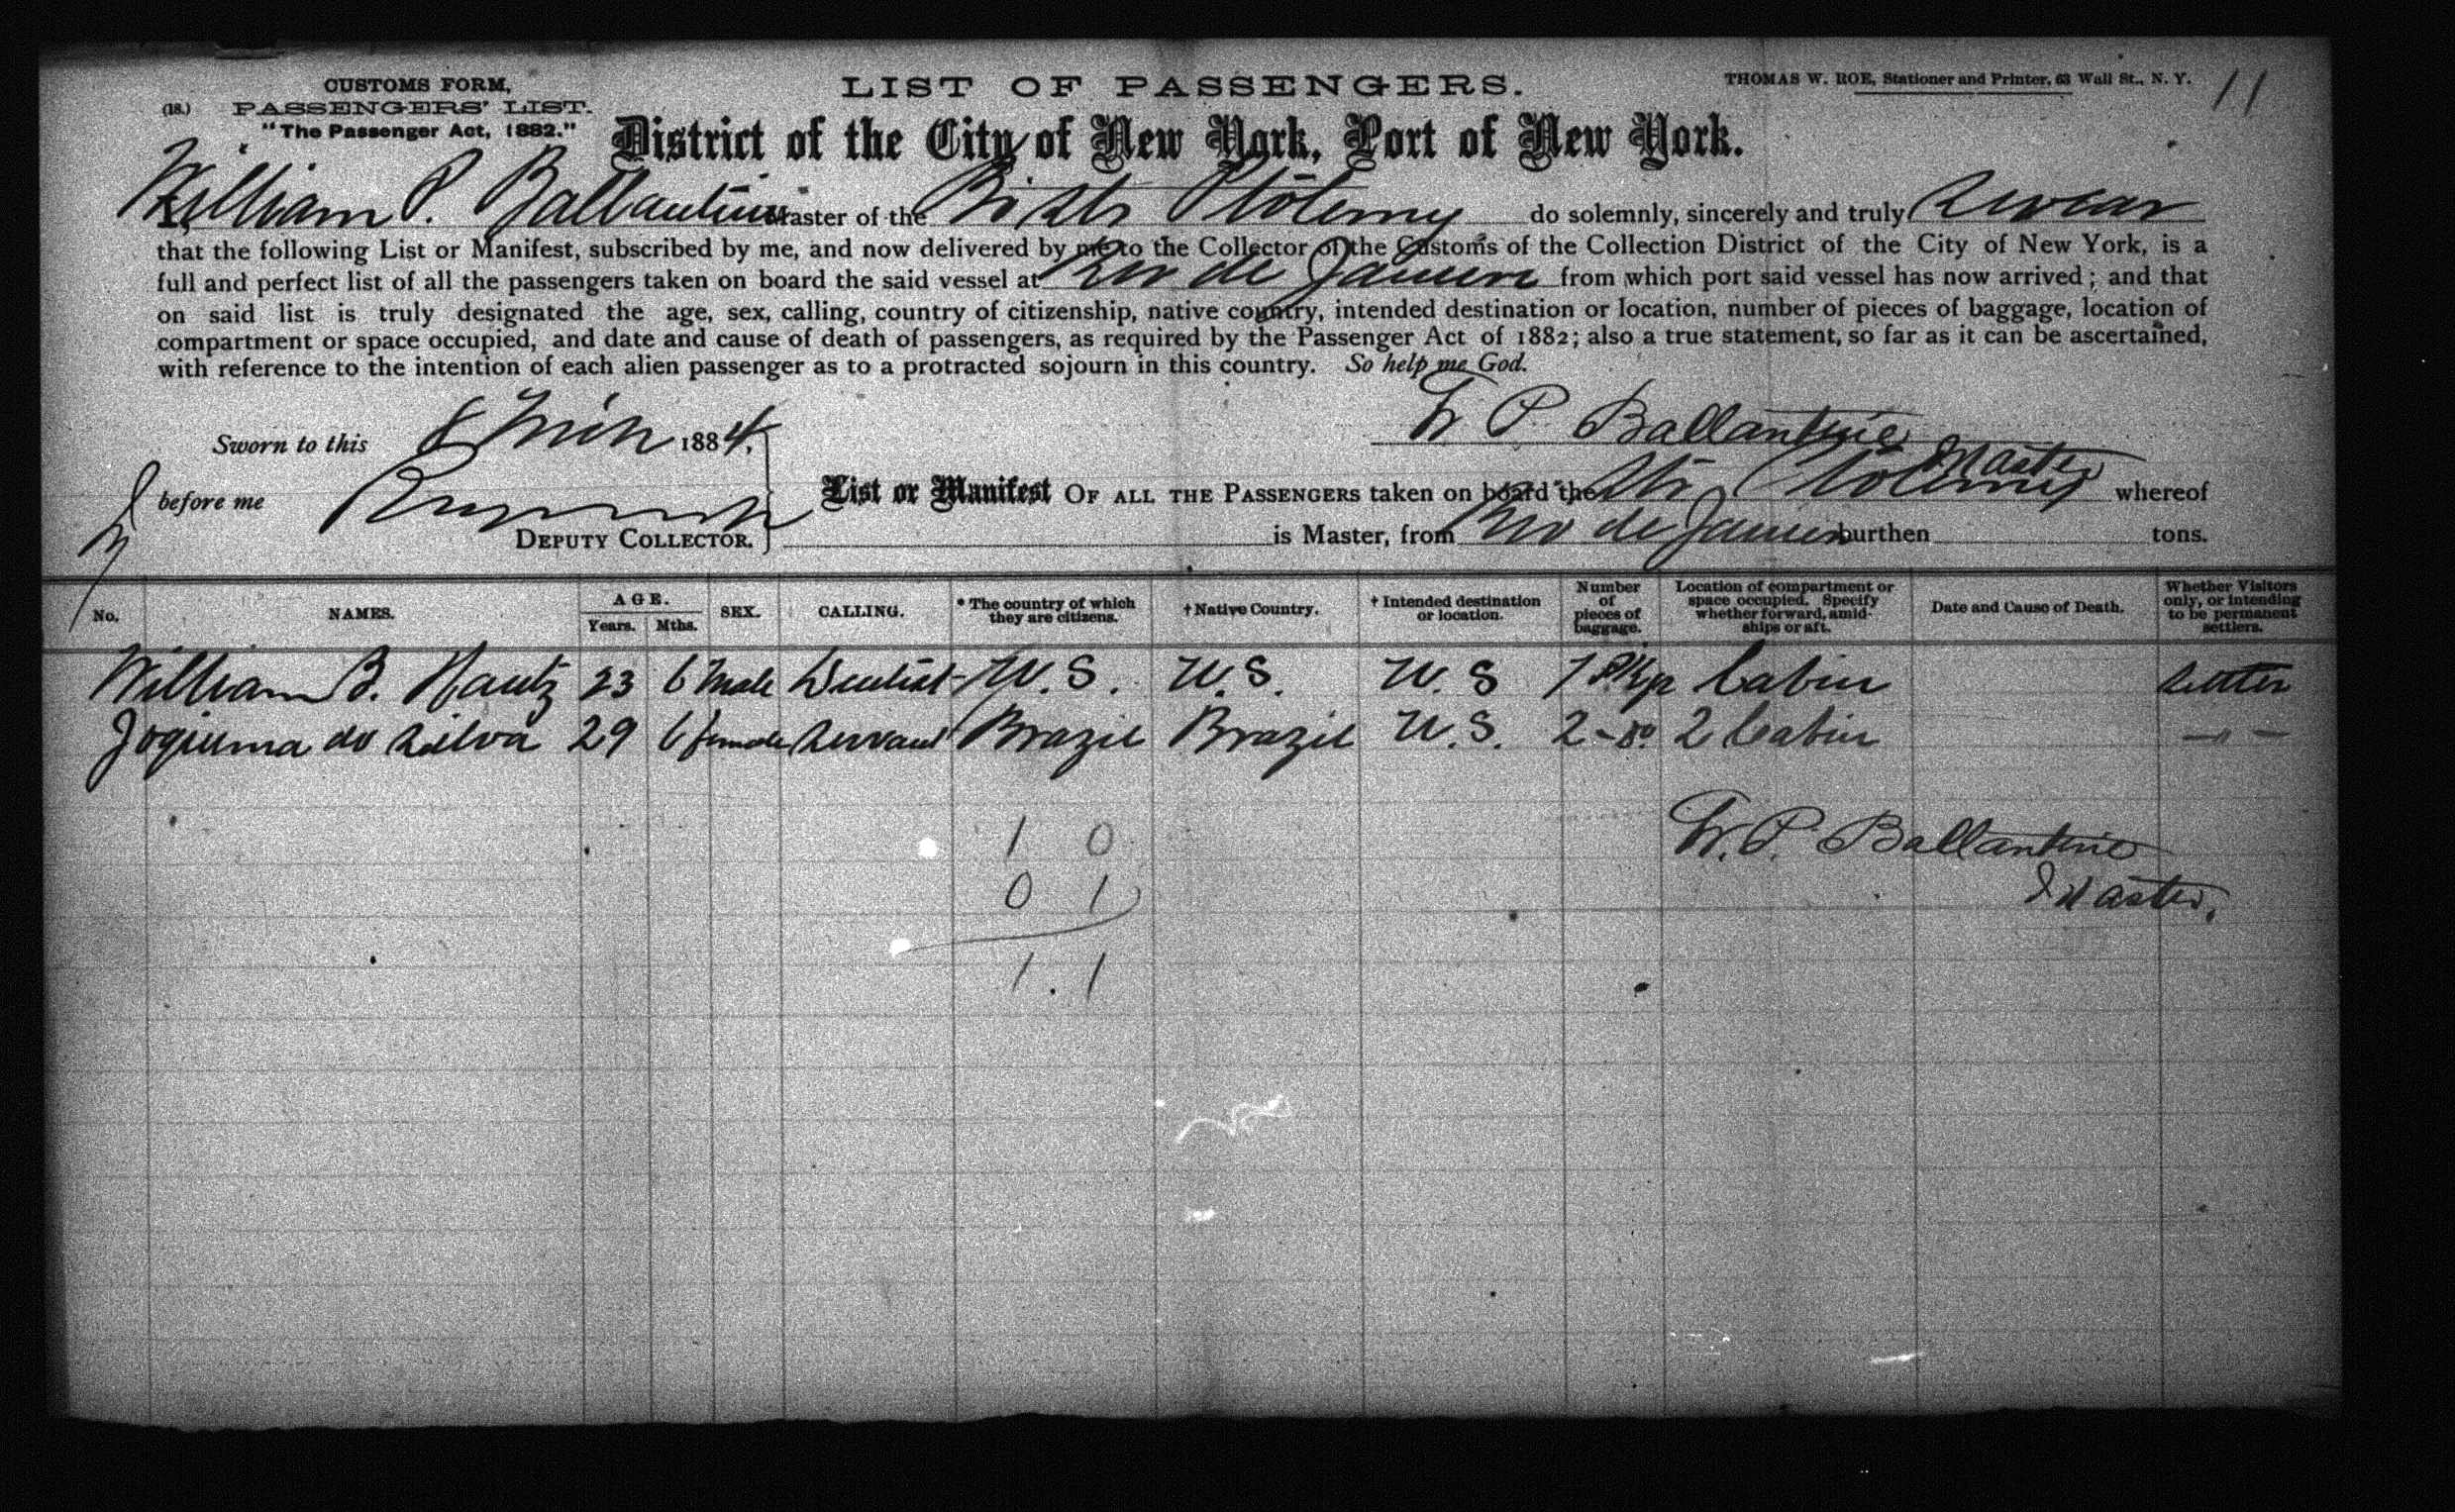 CUSTOMS FORM,
(18.) PASSENGERS' LIST.
"The Passenger Act, 1882."
LIST OF PASSENGERS.
THOMAS W. ROE, Stationer and Printer, 63 Wall St., N. Y.
11
District of the City of New York, Port of New York.
I, William P. Ballantine Master of the Ptolemy do solemnly, sincerely and truly swear
that the following List or Manifest, subscribed by me, and now delivered by me to the Collector of the Customs of the Collection District of the City of New York, is a
full and perfect list of all the passengers taken on board the said vessel at Rio de Janeiro from which port said vessel has now arrived; and that
on said list is truly designated the age, sex, calling, country of citizenship, native country, intended destination or location, number of pieces of baggage, location of
compartment or space occupied, and date and cause of death of passengers, as required by the Passenger Act of 1882; also a true statement, so far as it can be ascertained,
with reference to the intention of each alien passenger as to a protracted sojourn in this country. So help me God.
W P Ballantine
Master
Sworn to this 8 1884,
before me
DEPUTY COLLECTOR.
List or Manifest OF ALL THE PASSENGERS taken on board the Str Ptolemy whereof
is Master, from Rio de Janeiro burthen tons.
No. NAMES. AGE. Years. Mths. SEX. CALLING. * The country of which they are citizens. † Native Country. † Intended destination or location. Number of pieces of baggage. Location of compartment or space occupied. Specify whether forward, amidships or aft. Date and Cause of Death. Whether Visitors only, or intending to be permanent settlers.
William B. Nautz 23 6 Male Dentist U.S. U.S. U.S 1 Cabin Settler
do Silva 29 6 female Servant Brazil Brazil U.S. 2 - do. 2 Cabin — " —
1 0
0 1
1 . 1
W. P. Ballantine
Master.